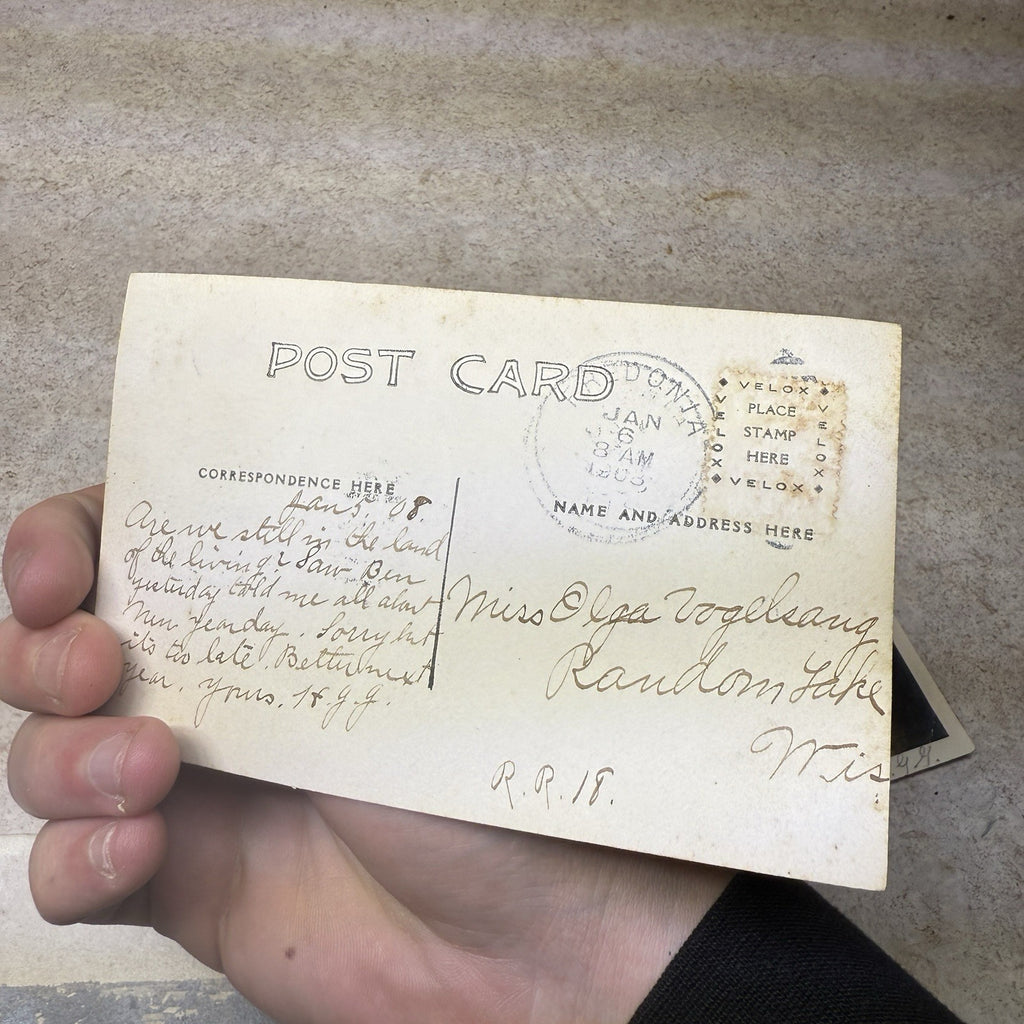 POST CARD
CORRESPONDENCE HERE
Jan 5. 08.
Are we still in the land
of the living? Saw Ben
yesterday told me all about
New Year day. Sorry but
its too late. Better next
year. yours. H.G.G.
DONIA
JAN
6
8 AM
1908
VELOX
VELOX
PLACE
STAMP
HERE
VELOX
VELOX
NAME AND ADDRESS HERE
Miss Olga Vogelsang
Random Lake
Wis.
R.R. 18.